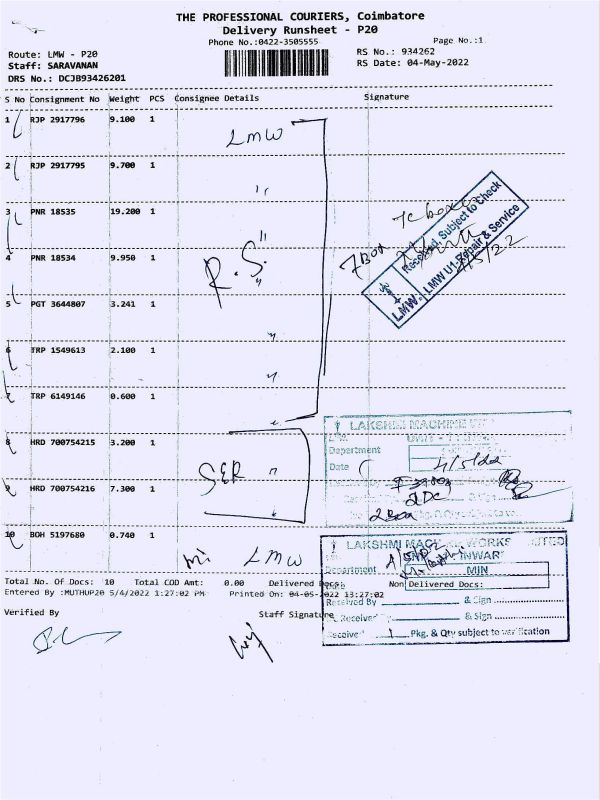 THE PROFESSIONAL COURIERS, Coimbatore
Delivery Runsheet - P20
Phone No.:0422-3505555
Page No.:1
Route: LMW - P20
RS No.: 934262
Staff: SARAVANAN
RS Date: 04-May-2022
DRS No.: DCJB93426201
S No Consignment No Weight PCS Consignee Details Signature
1 RJP 2917796 9.100 1 LMW
2 RJP 2917795 9.700 1 "
3 PNR 18535 19.200 1
R.S.
4 PNR 18534 9.950 1 "
5 PGT 3644807 3.241 1 "
6 TRP 1549613 2.100 1 "
7 TRP 6149146 0.600 1 "
8 HRD 700754215 3.200 1
SER "
9 HRD 700754216 7.300 1 "
10 BOH 5197680 0.740 1 LMW
7 Box
Received, Subject to Check
4/5/22
LMW U1-Repair & Service
LMW.
LAKSHMI MACHINE
Department
Date 4/5/22
2 DC
2 Box
LAKSHMI MACHINE WORKS LIMITED
INWARD
Department MIN
Received By & Sign
& Sign
Received 1 Pkg. & Qty subject to verification
Total No. Of Docs: 10 Total COD Amt: 0.00 Delivered Docs: Non Delivered Docs:
Entered By :MUTHUP20 5/4/2022 1:27:02 PM Printed On: 04-05-2022 13:27:02
Verified By Staff Signature